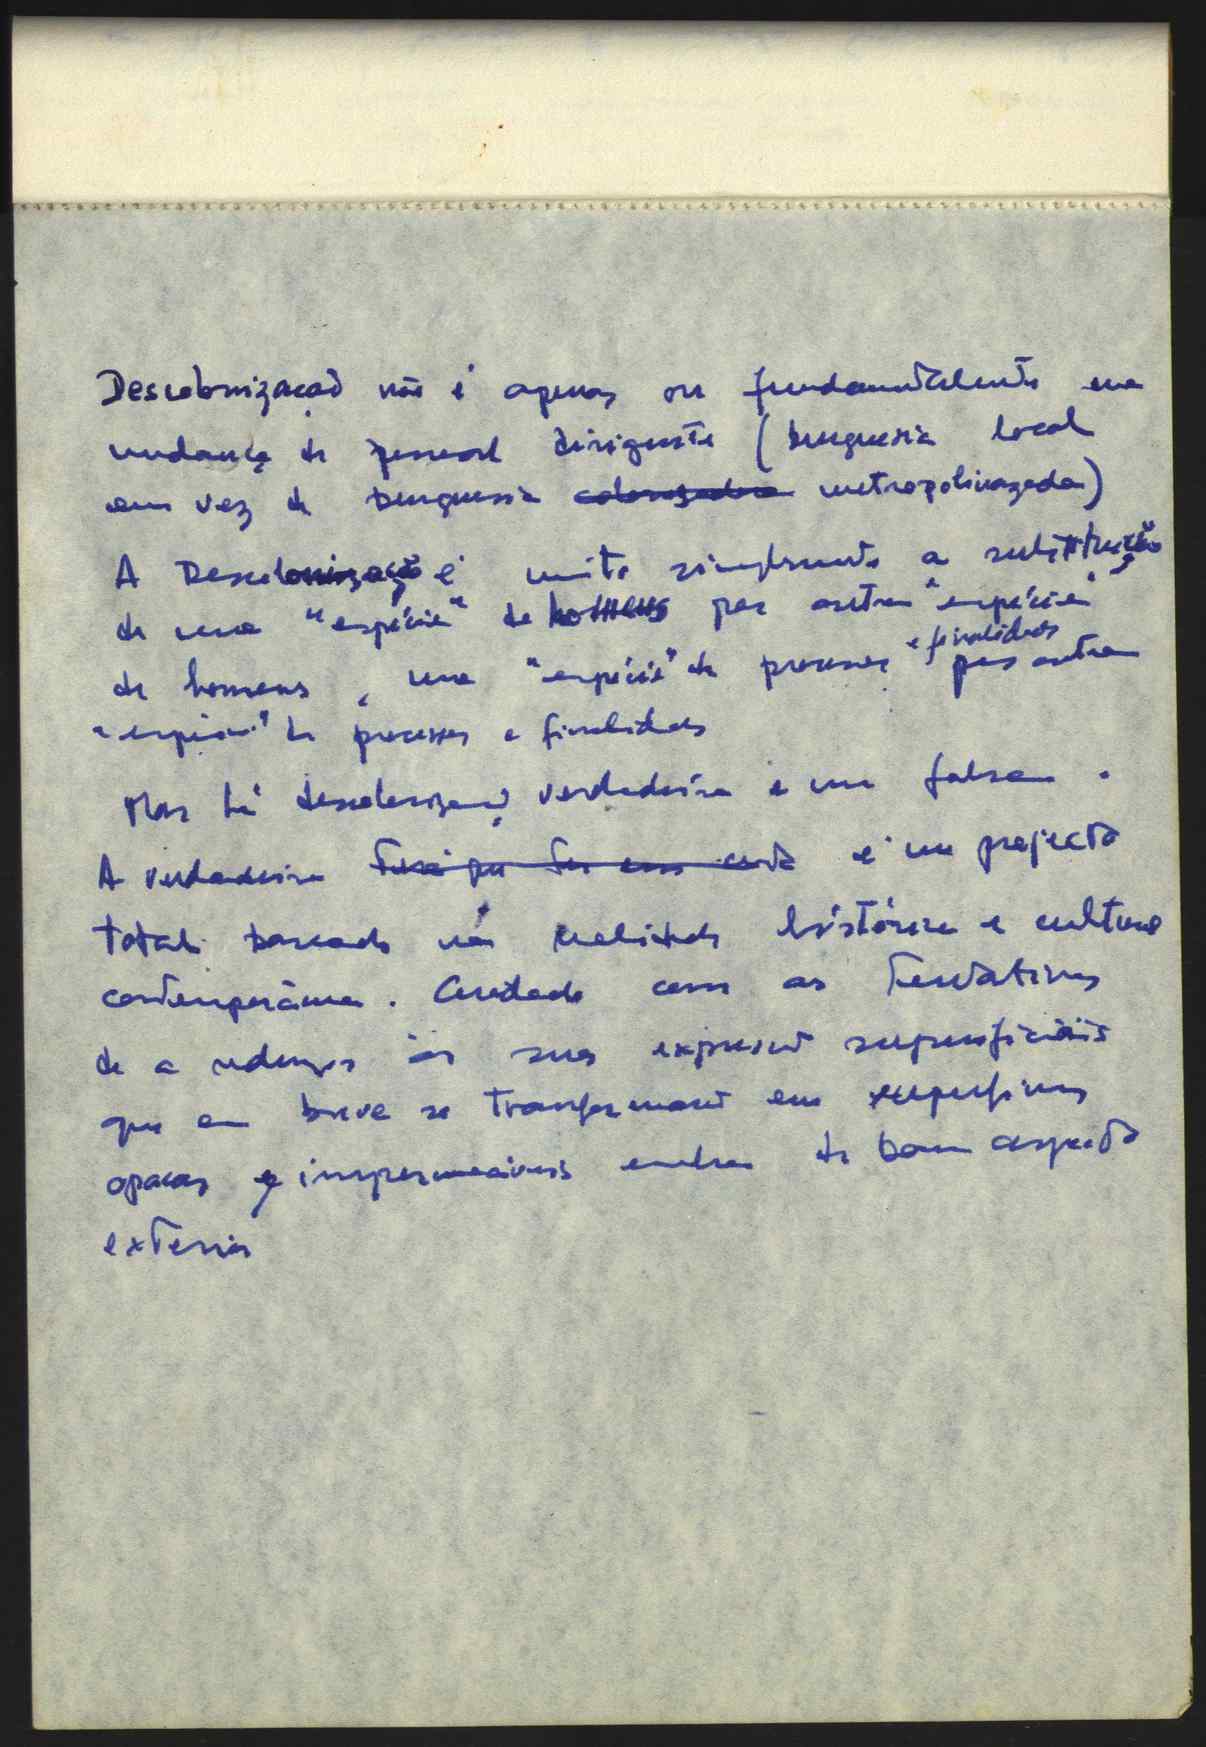 Descolonização não é apenas ou fundamentalmente uma
mudança de pessoal dirigente (burguesia local
em vez de burguesia colonizadora metropolinazada)
A Descolonização é muito simplesmente a substituição
de uma "espécie" de homens por outra "espécie"
de homens, uma "espécie" de processos e finalidades por outra
"espécie" de processos e finalidades
Mas há descolonização verdadeira e uma falsa.
A verdadeira terá que ser em conta é um projecto
total baseado na realidade histórica e cultural
contemporânea. Cuidado com as tentativas
de a reduzir às suas expressões superficiais
que em breve se transformarão em superfícies
opacas e impermeáveis embora de bom aspecto
exterior